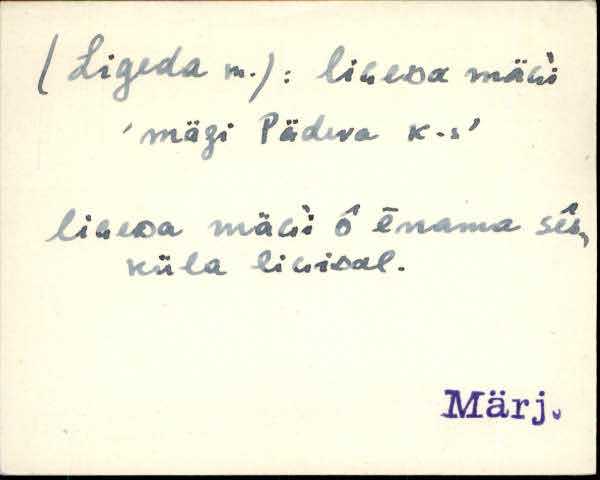 ( Ligeda m.) : liɢᴇᴅa mäɢì
'mägi Pädeva k-s'
liɢᴇᴅa mäɢì ô ēnama sês,
küla liɢiᴅal.
Märj.